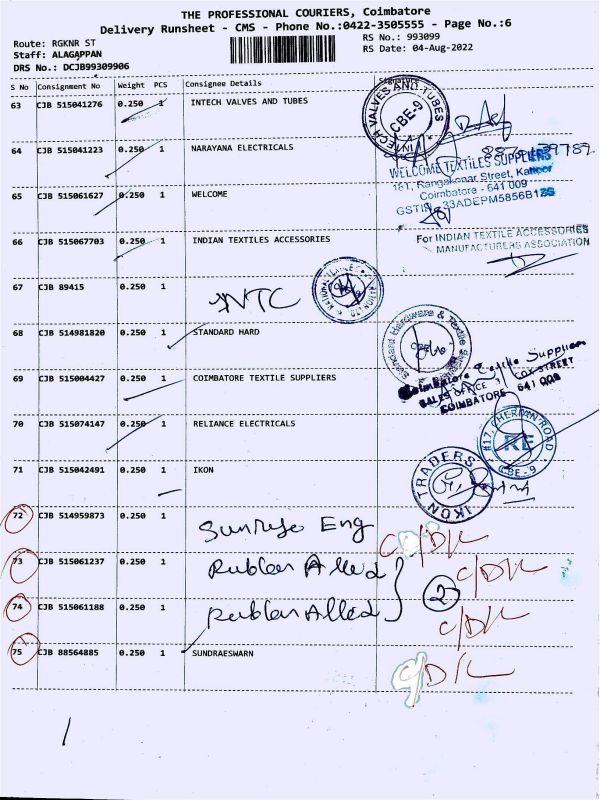 THE PROFESSIONAL COURIERS, Coimbatore
Delivery Runsheet - CMS - Phone No.:0422-3505555 - Page No.:6
Route: RGKNR ST
Staff: ALAGAPPAN
DRS No.: DCJB99309906
RS No.: 993099
RS Date: 04-Aug-2022
S No Consignment No Weight PCS Consignee Details Signature
63 CJB 515041276 0.250 1 INTECH VALVES AND TUBES
INTECH VALVES AND TUBES
CBE-9
64 CJB 515041223 0.250 1 NARAYANA ELECTRICALS
WELCOME TEXTILES SUPPLIERS
Street,
Coimbatore - 641 009
65 CJB 515061627 0.250 1 WELCOME
GSTIN 33ADEPM5856B1ZG
66 CJB 515067703 0.250 1 INDIAN TEXTILES ACCESSORIES
For INDIAN TEXTILE ACCESSORIES
MANUFACTURERS ASSOCIATION
67 CJB 89415 0.250 1
NTC
68 CJB 514981820 0.250 1 STANDARD HARD
Standard Hardware & Textile
69 CJB 515004427 0.250 1 COIMBATORE TEXTILE SUPPLIERS
Coimbatore Textile Suppliers
SALES OFFICE STREET
COIMBATORE 641 008
70 CJB 515074147 0.250 1 RELIANCE ELECTRICALS
#17, CHERMAN ROAD
RE
CBE-9
71 CJB 515042491 0.250 1 IKON
IKON TRADERS
72 CJB 514959873 0.250 1
Sunrise Eng
C/D/L
73 CJB 515061237 0.250 1
Rubber Allied
C/D/L
2
74 CJB 515061188 0.250 1
Rubber Allied
C/D/L
75 CJB 88564885 0.250 1 SUNDRAESWARN
C/D/L